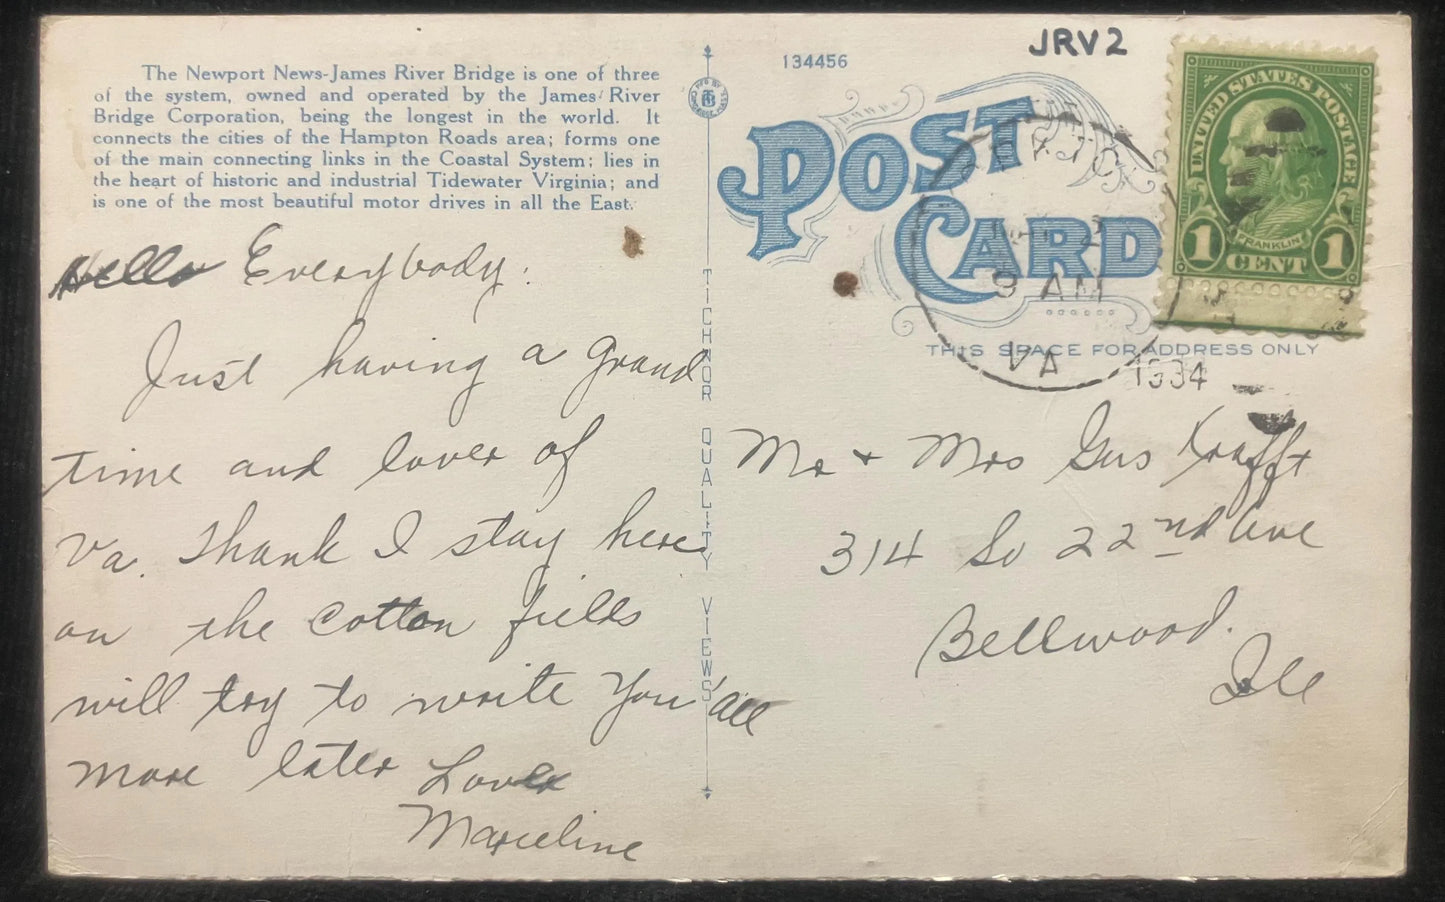 The Newport News-James River Bridge is one of three
of the system, owned and operated by the James River
Bridge Corporation, being the longest in the world. It
connects the cities of the Hampton Roads area; forms one
of the main connecting links in the Coastal System; lies in
the heart of historic and industrial Tidewater Virginia; and
is one of the most beautiful motor drives in all the East.
Hello Everybody.
Just having a grand
time and lover of
Va. Thank I stay here
on the cotton fields
will try to write You'all
more later Love
Marceline
TICHNOR QUALITY VIEWS
134456
JRV2
POST CARD
THIS SPACE FOR ADDRESS ONLY
9 AM
VA
1934
UNITED STATES POSTAGE
FRANKLIN
1 CENT 1
Mr + Mrs Gus Krafft
314 So 22nd Ave
Bellwood.
Ill